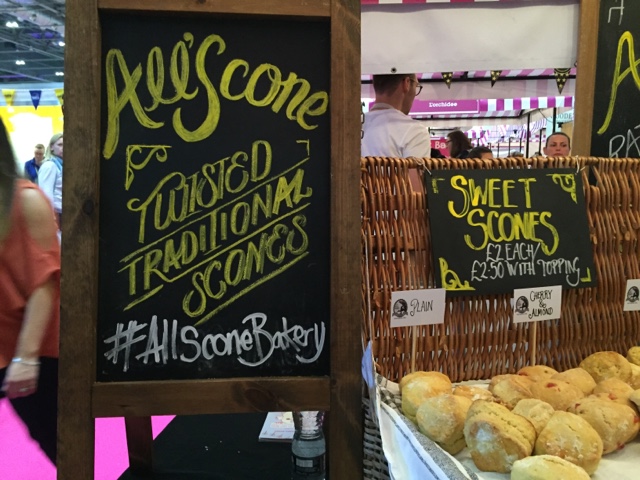 All'Scone
TWISTED
TRADITIONAL
SCONES
#AllSconeBakery
SWEET
SCONES
£2 EACH/
£2.50 WITH TOPPING
PLAIN
CHERRY
&
ALMOND
L'orchidee